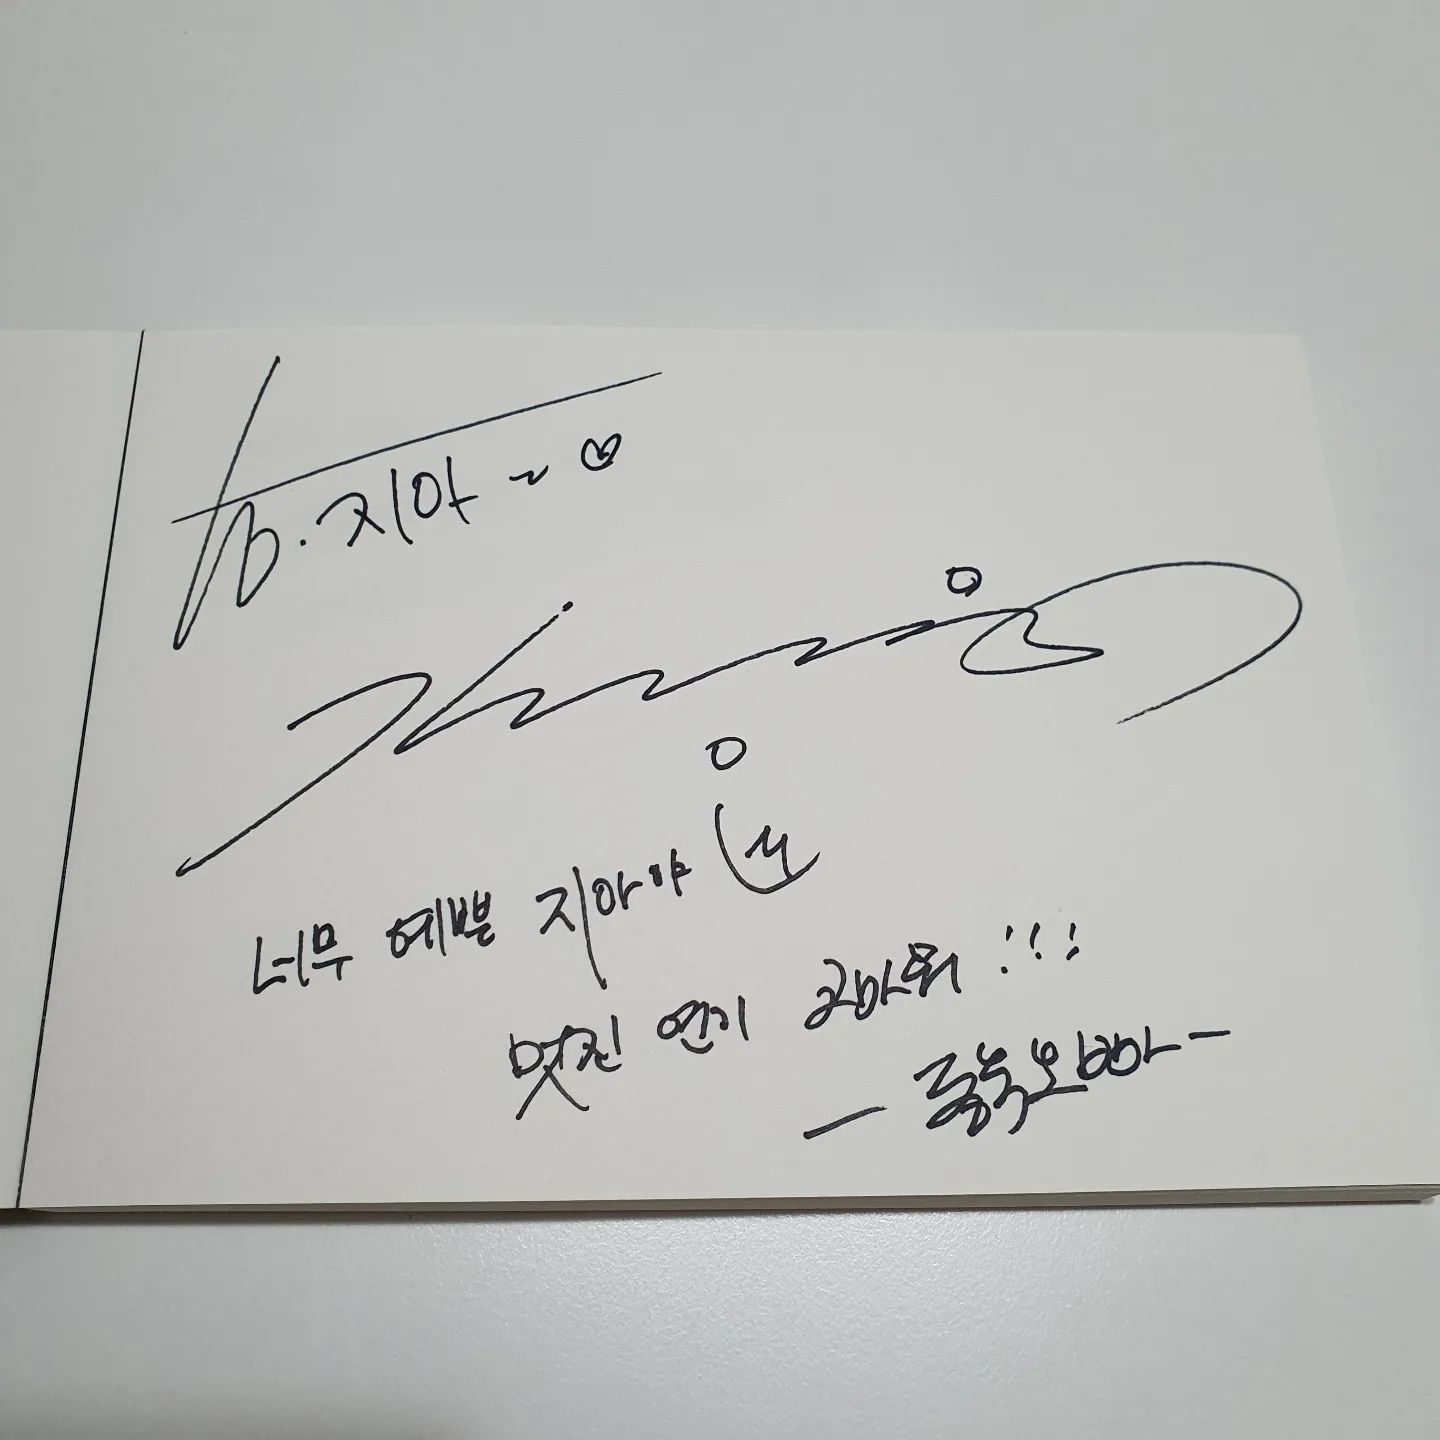 To. 지아~♡
너무 예쁜 지아야
멋진 연기 고마워!!!
- 중옥오빠 -